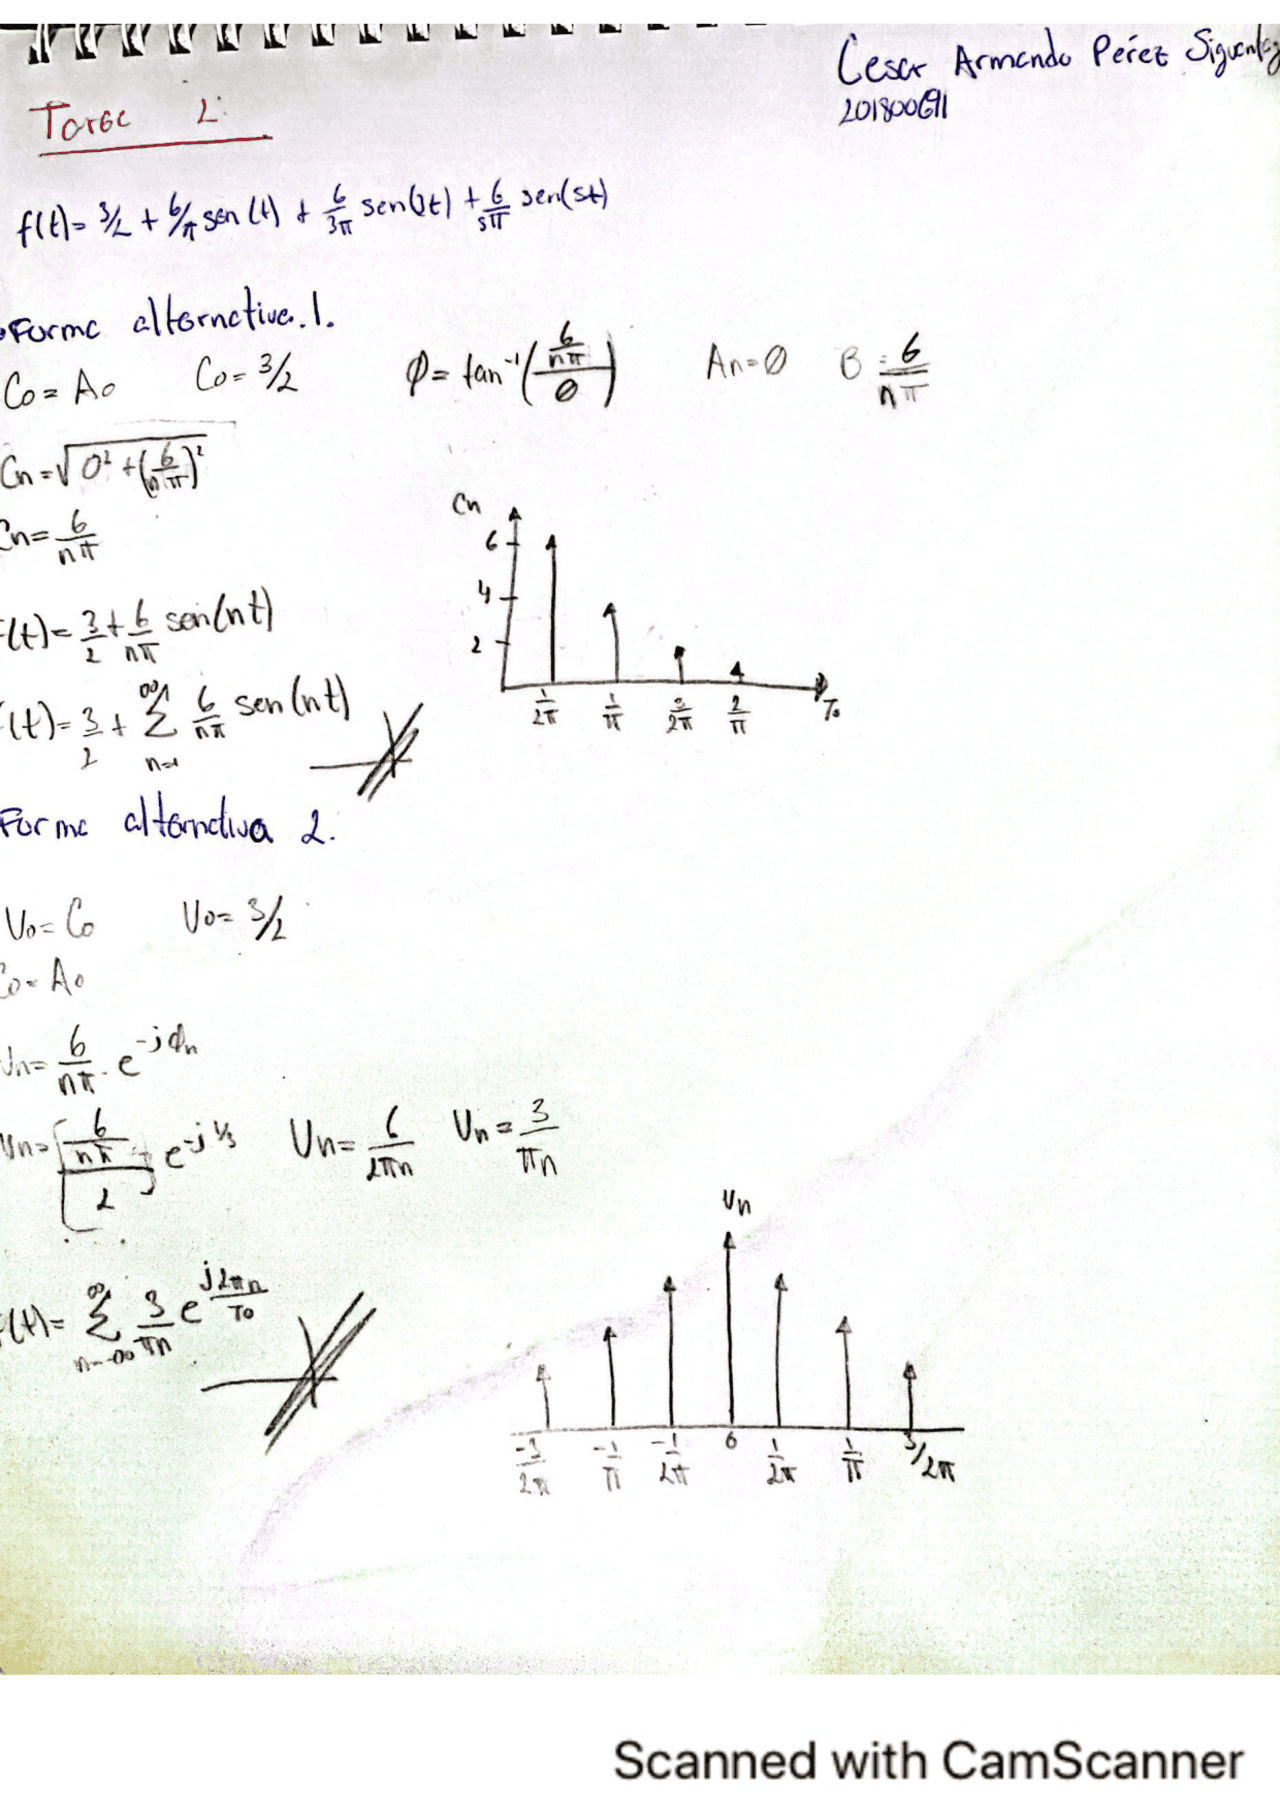 Cesar Armando Pérez Siguenza
201800691
Tarea 2.
f(t)= 3/2 + 6/π sen(t) + 6/3π sen(3t) + 6/5π sen(5t)
Forma alternativa 1.
Co = Ao Co = 3/2 ϕ = tan⁻¹((6/nπ)/0) An=0 B = 6/nπ
Cn = √(0² + (6/nπ)²)
Cn = 6/nπ
f(t) = 3/2 + 6/nπ sen(nt)
f(t) = 3/2 + ∞ Σ n=1 6/nπ sen(nt)
Cn
6
4
2
1/2π 1/π 3/2π 2/π To
Forma alternativa 2.
Vo = Co Vo = 3/2
Co = Ao
Un = 6/nπ · e^-jϕn
Un = [(6/nπ)/2] e^-j Un = 6/2πn Un = 3/πn
f(t) = ∞ Σ n=-∞ 3/πn e^(j2πn/To)
Un
-3/2π -1/π -1/2π 0 1/2π 1/π 3/2π
Scanned with CamScanner